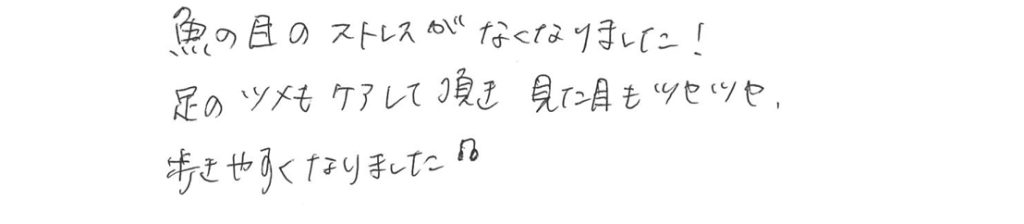 魚の目のストレスがなくなりました!
足のツメもケアして頂き 見た目もツヤツヤ、
歩きやすくなりました♫